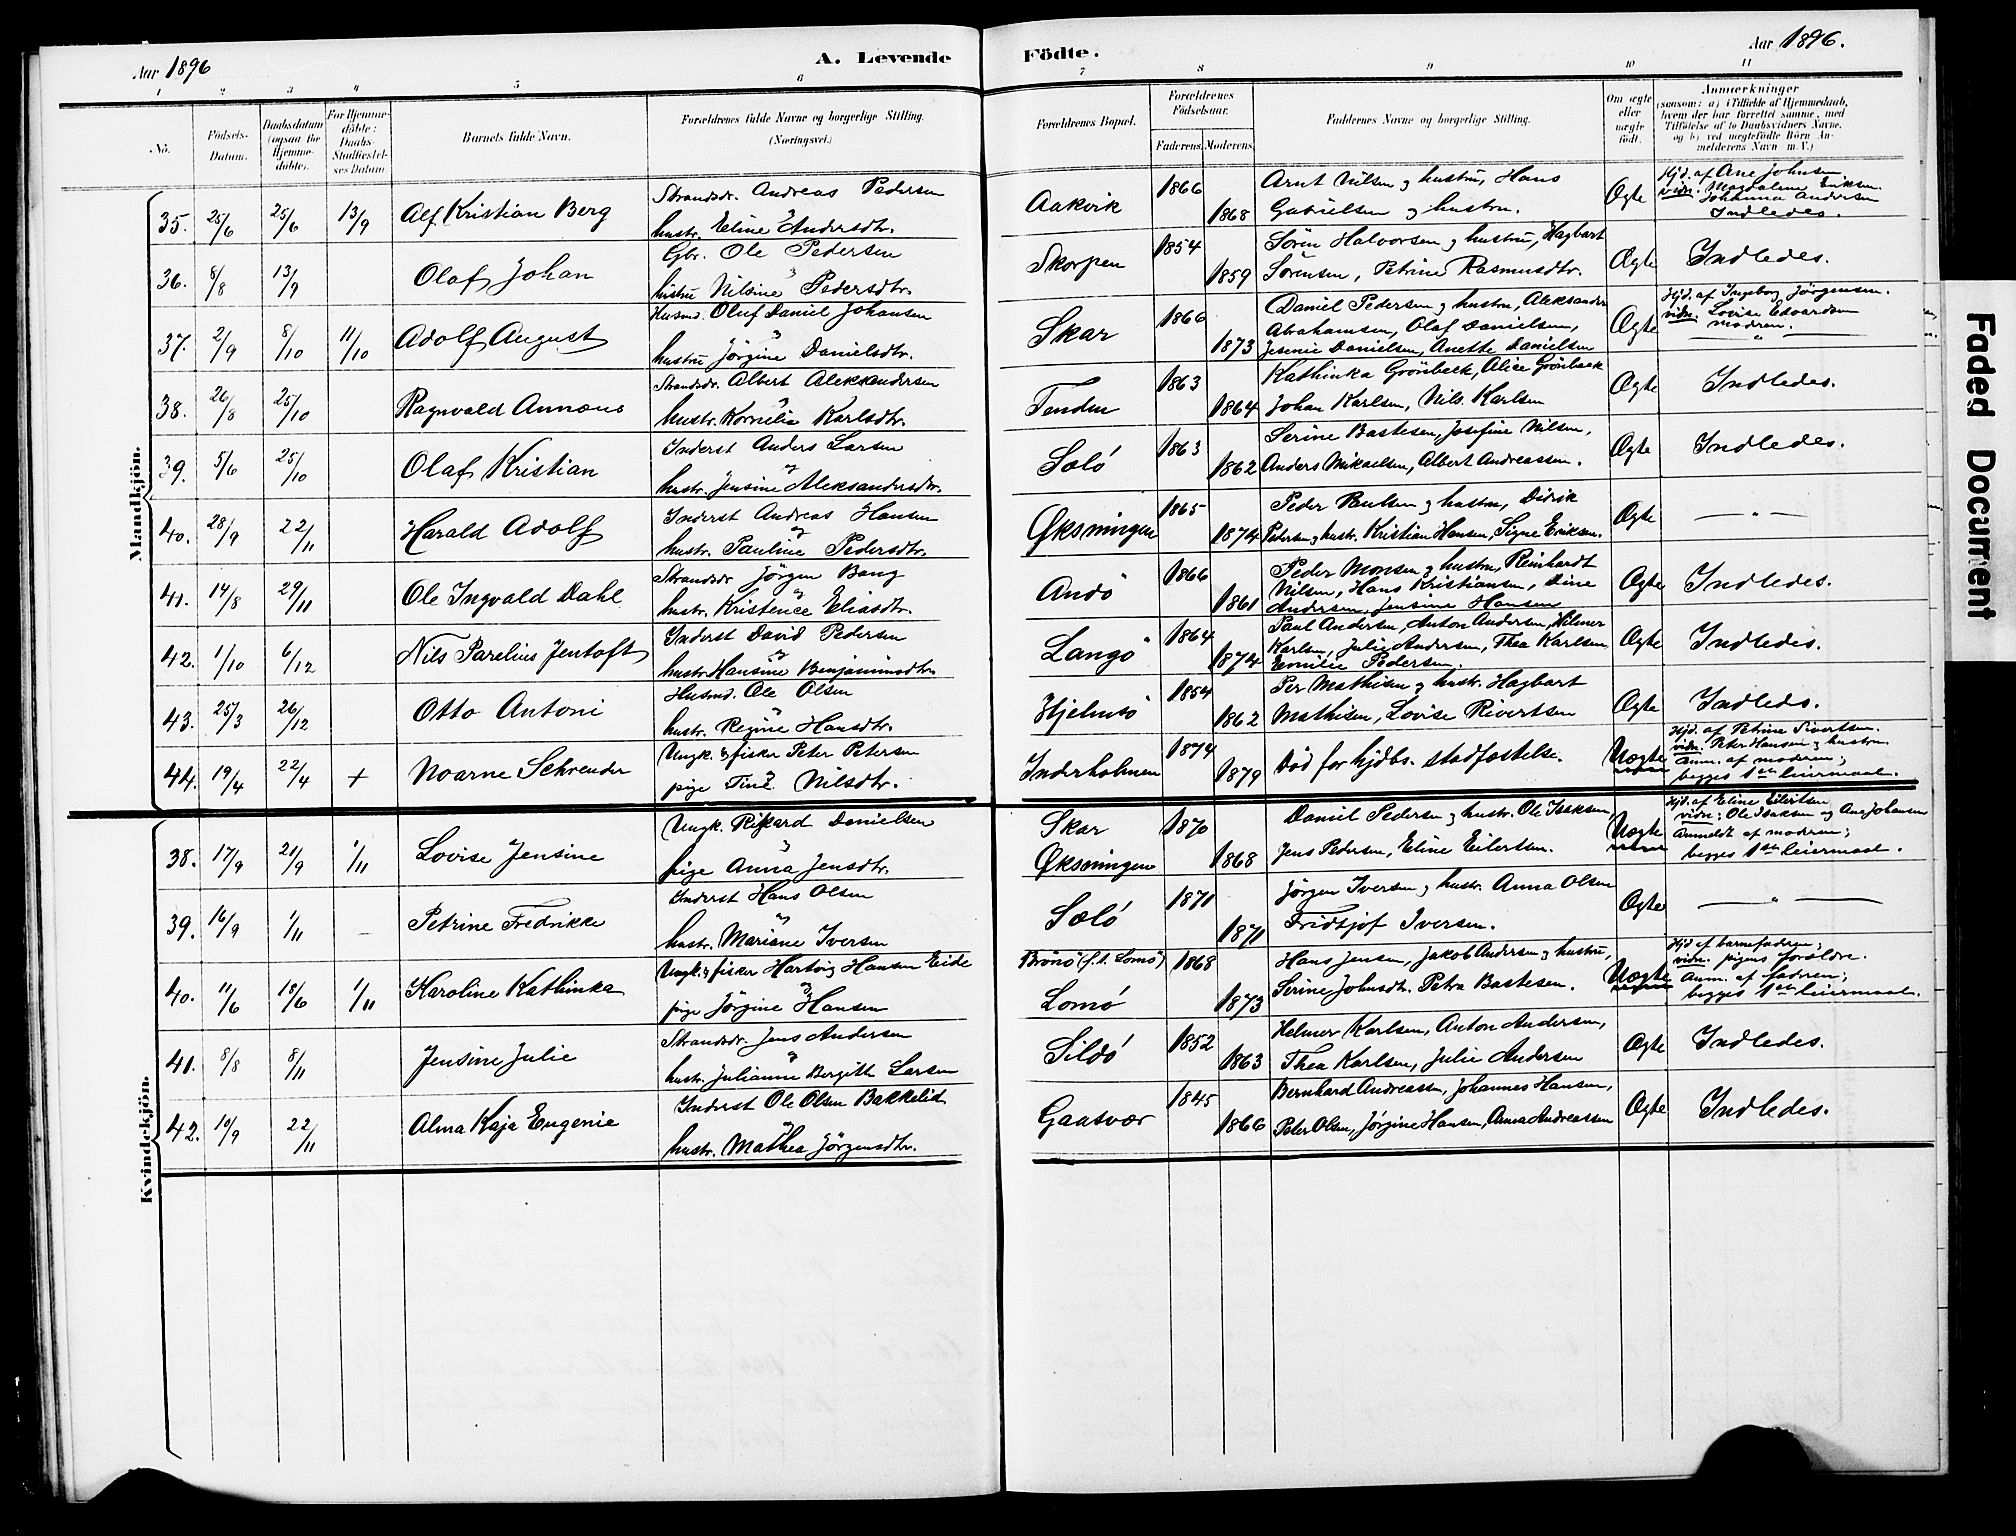 Aar 1896
A. Levende
Födte.
Aar 1896.
1 2 3 4 5 6 7 8 9 10 11
No.
Födsels-
Datum.
Daabsdatum
(ogsaa for
Hjemme-
döbte).
For Hjemme-
döbte:
Daabs-
Stadfæstel-
ses Datum
Barnets fulde Navn.
Forældrenes fulde Navne og borgerlige Stilling.
(Næringsvei.)
Forældrenes Bopæl.
Forældrenes
Födselsaar.
Faderens. Moderens.
Faddernes Navne og borgerlige Stilling.
Om ægte
eller
uægte
födt.
Anmærkninger
(saasom: a) i Tilfælde af Hjemmedaab,
hvem der har forrettet samme, med
Tilföielse af to Daabsvidners Navne,
og b) ved uægtefödte Börn An-
melderens Navn m. V.)
Mandkjön.
35. 25/6 25/6 13/9 Alf Kristian Berg
Strandsdr. Andreas Pedersen
hustr. Eline Andersdtr.
Aakvik 1866 1868
Arnt Nilsen og hustru, Hans
Gabrielsen og hustru.
Ægte
Hjd. af Ane Johnsen
vidn. Magdalene Eriksen
Johanna Andersen
Indledes.
36. 8/8 13/9 Olaf Johan
Gbr. Ole Pedersen
hustru Nilsine Pedersdtr.
Skorpen 1854 1859
Sören Halvorsen og hustru, Hagbart
Sörensen, Petrine Rasmusdtr.
Ægte Indledes.
37. 2/9 8/10 11/10 Adolf August
Husmd. Oluf Daniel Johansen
hustru Jörgine Danielsdtr.
Skar 1866 1873
Daniel Pedersen og hustru, Aleksander
Abrahamsen, Olaf Danielsen,
Jesenie Danielsen, Anette Danielsen
Ægte
Hjd. af Ingeborg Jörgensen.
vidn. Lovise Edvardsen
modren.
— " —
38. 26/8 25/10 Ragnvald Annæus
Strandsdr. Albert Alekkandersen
hustr. Kornelia Karlsdtr.
Tenden 1863 1864
Kathinka Grönbeck, Alice Grönbeck
Johan Karlsen, Nils Karlsen
Ægte Indledes.
39. 5/6 25/10 Olaf Kristian
Inderst Anders Larsen
og
hustr. Jensine Aleksandersdtr.
Solö 1863 1862
Serine Bastesen, Josefine Nilsen,
Anders Mikaelsen, Albert Andreassen.
Ægte Indledes.
40. 28/9 22/11 Harald Adolf
Inderst Andreas Hansen
og
hustr. Pauline Pedersdtr.
Øksningen 1865 1874
Peder Paulsen og hustru, Didrik
Pedersen og hustr. Kristian Hansen, Signe Eriksen.
Ægte — " —
41. 14/8 29/11 Ole Ingvald Dahl
Strandsdr Jörgen Bang
og
hustr. Kristence Eliasdtr.
Andö 1866 1861
Peder Monsen og hustru, Reinhardt
Nilsen, Hans Kristiansen, Dine
Andersen, Jensine Hansen
Ægte Indledes.
42. 1/10 6/12 Nils Parelius Jentoft
Inderst David Pedersen
og
hustr. Hansine Benjaminsdtr.
Langö 1864 1874
Paul Andersen, Anton Andersen, Hilmer
Karlsen, Julie Andersen, Thea Karlsen
Emilie Pedersen.
Ægte Indledes.
43. 25/3 26/12 Otto Antoni
Husmd. Ole Olsen
og
hustr. Regine Hansdtr.
Hjelmsö 1854 1862
Per Mathisen og hustr. Hagbart
Mathisen, Lovise Rivertsen
Ægte Indledes.
44. 19/4 22/4 + Noarne Schrender
Ungk. og fisker Peter Petersen
og
pige Tine Nilsdtr.
Inderholmen 1874 1879
Död for hjdbs. stadfæstelse.
Uægte
Hjd. af Petrine Sivertsen.
vidn. Peter Hansen og hustru
Anm. af moderen;
begges 1ste leiermaal.
Kvindekjön.
38. 17/9 21/9 1/11 Lovise Jensine
Ungk. Rikard Danielsen
og
pige Anna Jensdtr.
Skar
Øksningen 1870 1868
Daniel Pedersen og hustr. Ole Isaksen
Jens Pedersen, Eline Eilertsen.
Uægte
Hjd. af Eline Eilertsen
vidn: Ole Isaksen og Ane Johansen
Anmeldt af moderen;
begges 1ste leiermaal.
39. 16/9 1/11 – Petrine Fredrikke
Inderst Hans Olsen
og
hustr. Mariane Iversen
Solö 1871 1871
Jörgen Iversen og hustr. Anna Olsen
Fridtjof Iversen.
Ægte — " —
40. 11/6 18/6 1/11 Karoline Kathinka
Ungk. og fisker Hartvig Hansen Eide
og
pige Jörgine Hansen
Brönö (f. t. Lomö)
Lomö 1868 1873
Hans Jensen, Jakob Andersen og hustru,
Serine Johnsdtr. Petra Bastesen.
Uægte
Hjd af barnefaderen;
vidn. pigens forældre.
Anm. af fadren;
begges 1ste leiermaal.
41. 8/8 8/11 Jensine Julie
Strandsdr. Jens Andersen
og
hustr. Julianne Bergitte Larsen
Sildö 1852 1863
Helmer Karlsen, Anton Andersen,
Thea Karlsen, Julie Andersen
Ægte Indledes.
42. 10/9 22/11 Alma Kaja Eugenie
Inderst Ole Olsen Bakkelid
og
hustr. Mathea Jörgensdtr.
Gaasvær 1845 1866
Bernhard Andreassen, Johannes Hansen,
Peter Olsen, Jörgine Hansen, Anna Andreassen
Ægte Indledes.
Faded Document